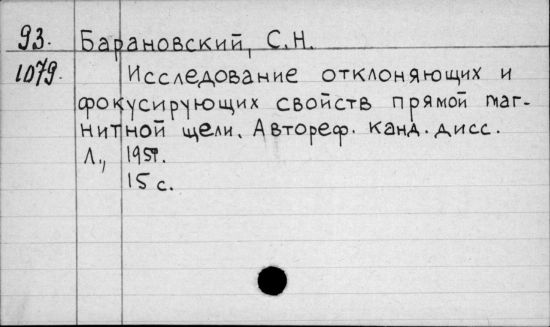 93. Барановский, С.Н.
1079. Исследование отклоняющих и
фокусирующих свойств прямой маг-
нитной щели. Автореф. канд. дисс.
Л.,
15 с.